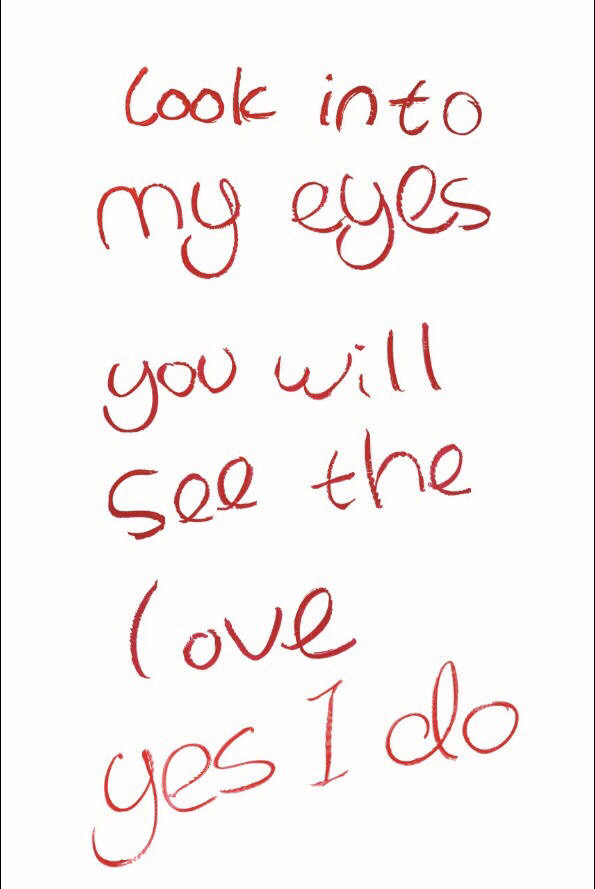 Look into
my eyes
you will
see the
love
yes I do